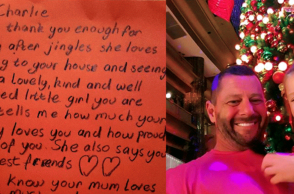 Charlie
thank you enough for
after jingles she loves
to your house and seeing
a lovely, kind and well
little girl you are
tells me how much your
loves you and how proud
of you. She also says you
friends ♡♡
Know your mum loves